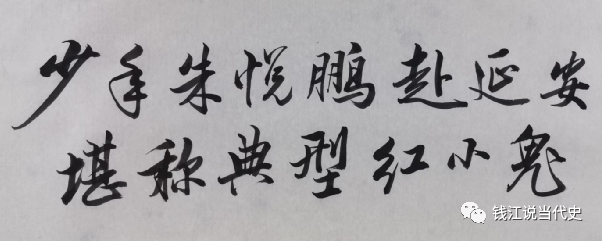 少年朱悦鹏赴延安
堪称典型红小鬼
钱江说当代史